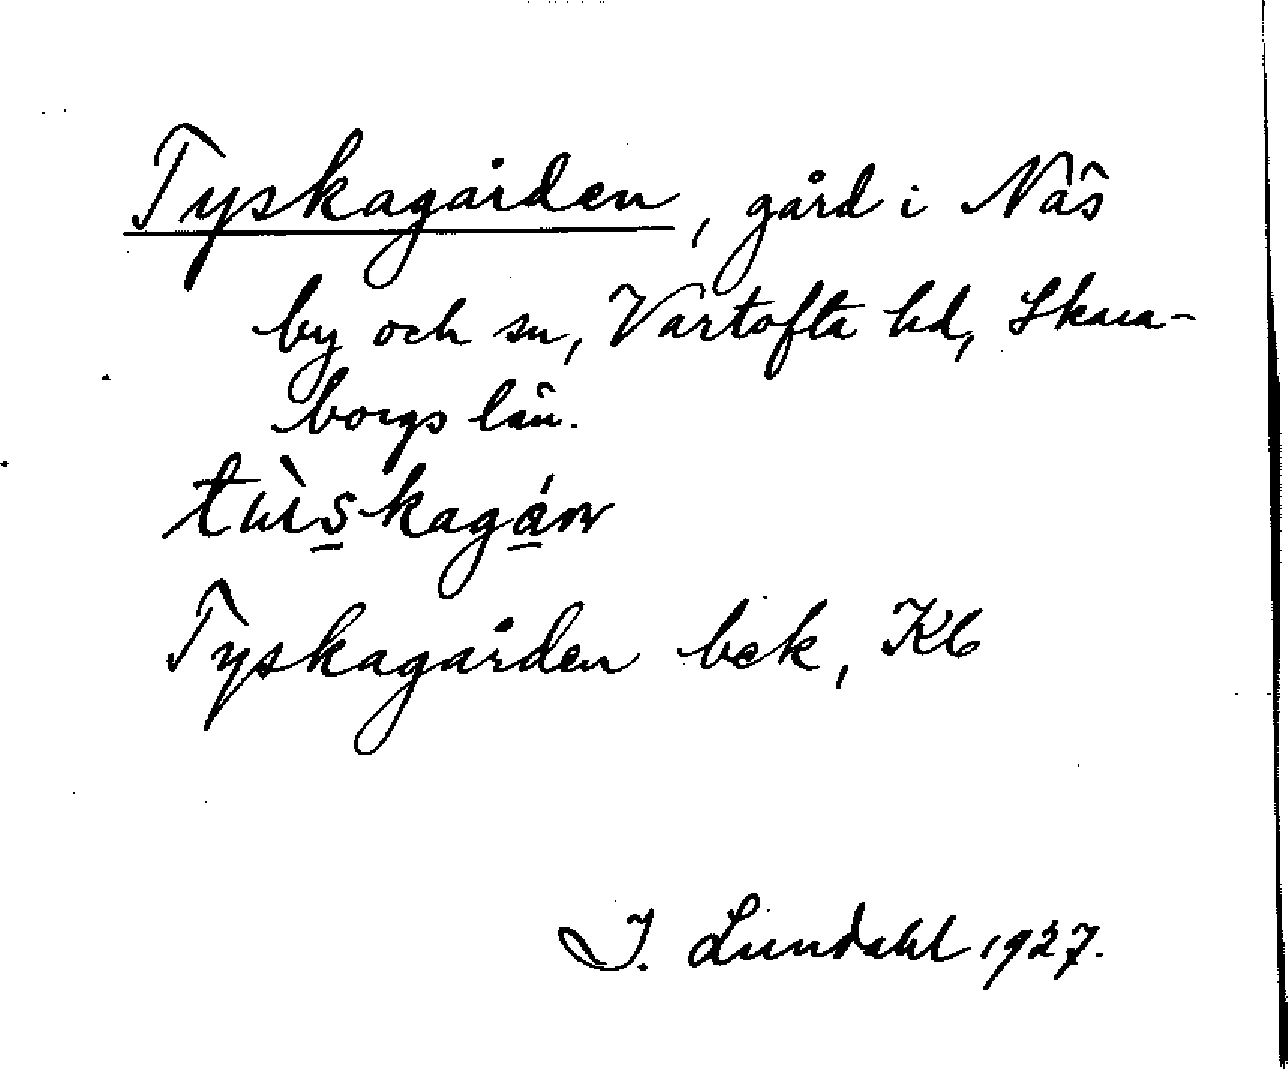 Tyskagården, gård i Näs
by och sn, Vartofta hd, Skara-
borgs län.
Tyskagården bek, Kb
I. Lundahl 1927.